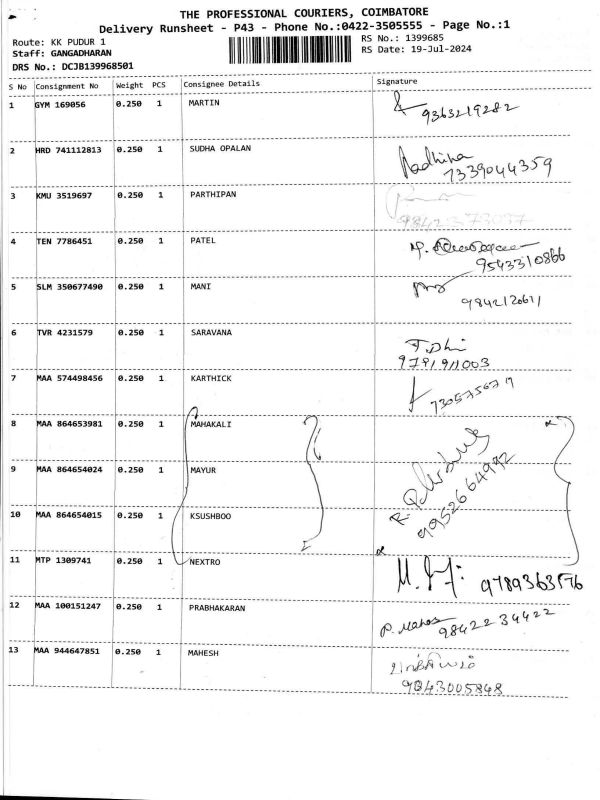 THE PROFESSIONAL COURIERS, COIMBATORE
Delivery Runsheet - P43 - Phone No.:0422-3505555 - Page No.:1
Route: KK PUDUR 1
RS No.: 1399685
Staff: GANGADHARAN
RS Date: 19-Jul-2024
DRS No.: DCJB139968501
S No Consignment No Weight PCS Consignee Details Signature
1 GYM 169056 0.250 1 MARTIN
9363219282
2 HRD 741112813 0.250 1 SUDHA OPALAN
Radhika
7339044359
3 KMU 3519697 0.250 1 PARTHIPAN
4 TEN 7786451 0.250 1 PATEL
9543310866
5 SLM 350677490 0.250 1 MANI
6 TVR 4231579 0.250 1 SARAVANA
9791911003
7 MAA 574498456 0.250 1 KARTHICK
8 MAA 864653981 0.250 1 MAHAKALI
9 MAA 864654024 0.250 1 MAYUR
9952664992
10 MAA 864654015 0.250 1 KSUSHBOO
11 MTP 1309741 0.250 1 NEXTRO
12 MAA 100151247 0.250 1 PRABHAKARAN
9842234422
13 MAA 944647851 0.250 1 MAHESH
9043005848